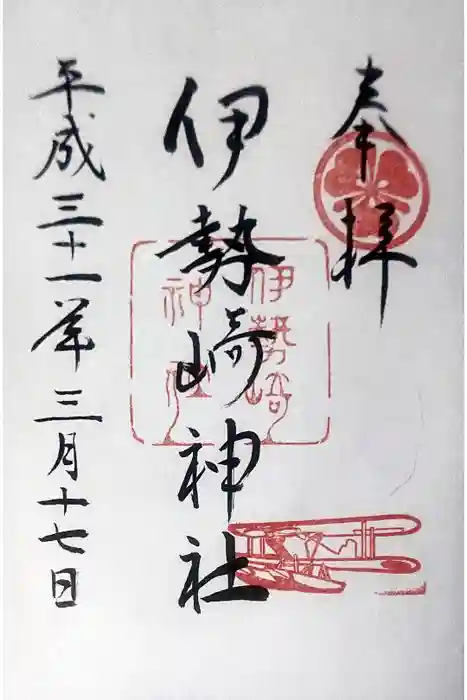 奉拝
伊勢崎神社
伊勢崎
神社
平成三十一年三月十七日